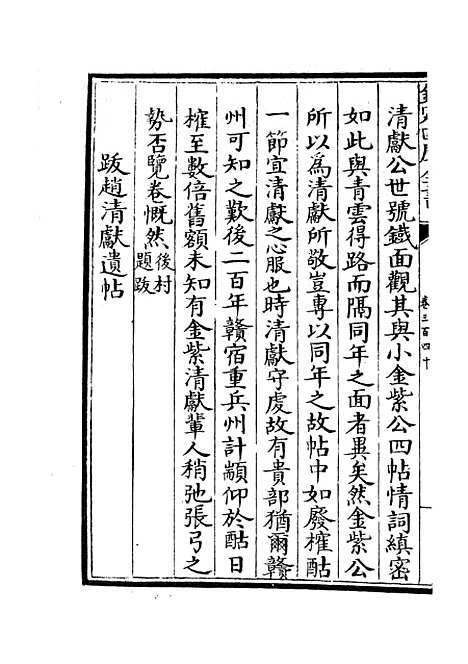 卷三百四十
清獻公世號鐵面觀其與小金紫公四帖情詞縝密
如此與青雲得路而隔同年之面者異矣然金紫公
所以為清獻所敬豈專以同年之故帖中如發榷酤
一節宜清獻之心服也時清獻守虔故有貴部猶爾贛
州可知之歎後二百年贛宿重兵州計顓仰於酤日
榷至數倍舊額未知有金紫清獻輩人稍弛張弓之
勢否覽卷慨然後村題跋
跋趙清獻遺帖